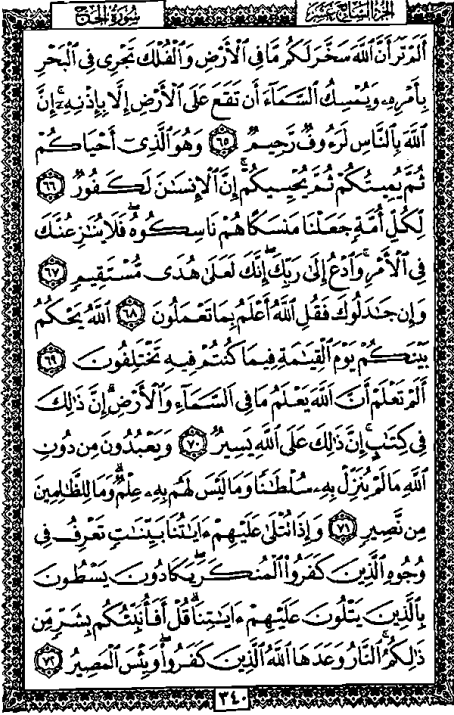 سُورَةُ الحَجّ
الجُزءُ السَّابِع عَشَر
أَلَمْ تَرَ أَنَّ ٱللَّهَ سَخَّرَ لَكُم مَّا فِى ٱلْأَرْضِ وَٱلْفُلْكَ تَجْرِى فِى ٱلْبَحْرِ
بِأَمْرِهِۦ وَيُمْسِكُ ٱلسَّمَآءَ أَن تَقَعَ عَلَى ٱلْأَرْضِ إِلَّا بِإِذْنِهِۦٓ ۗ إِنَّ
ٱللَّهَ بِٱلنَّاسِ لَرَءُوفٌ رَّحِيمٌ ٦٥ وَهُوَ ٱلَّذِىٓ أَحْيَاكُمْ
ثُمَّ يُمِيتُكُمْ ثُمَّ يُحْيِيكُمْ ۗ إِنَّ ٱلْإِنسَـٰنَ لَكَفُورٌ ٦٦
لِكُلِّ أُمَّةٍ جَعَلْنَا مَنسَكًا هُمْ نَاسِكُوهُ ۖ فَلَا يُنَـٰزِعُنَّكَ
فِى ٱلْأَمْرِ ۚ وَٱدْعُ إِلَىٰ رَبِّكَ ۖ إِنَّكَ لَعَلَىٰ هُدًى مُّسْتَقِيمٍ ٦٧
وَإِن جَـٰدَلُوكَ فَقُلِ ٱللَّهُ أَعْلَمُ بِمَا تَعْمَلُونَ ٦٨ ٱللَّهُ يَحْكُمُ
بَيْنَكُمْ يَوْمَ ٱلْقِيَـٰمَةِ فِيمَا كُنتُمْ فِيهِ تَخْتَلِفُونَ ٦٩
أَلَمْ تَعْلَمْ أَنَّ ٱللَّهَ يَعْلَمُ مَا فِى ٱلسَّمَآءِ وَٱلْأَرْضِ ۗ إِنَّ ذَٰلِكَ
فِى كِتَـٰبٍ ۚ إِنَّ ذَٰلِكَ عَلَى ٱللَّهِ يَسِيرٌ ٧٠ وَيَعْبُدُونَ مِن دُونِ
ٱللَّهِ مَا لَمْ يُنَزِّلْ بِهِۦ سُلْطَـٰنًا وَمَا لَيْسَ لَهُم بِهِۦ عِلْمٌ ۗ وَمَا لِلظَّـٰلِمِينَ
مِن نَّصِيرٍ ٧١ وَإِذَا تُتْلَىٰ عَلَيْهِمْ ءَايَـٰتُنَا بَيِّنَـٰتٍ تَعْرِفُ فِى
وُجُوهِ ٱلَّذِينَ كَفَرُوا۟ ٱلْمُنكَرَ ۖ يَكَادُونَ يَسْطُونَ
بِٱلَّذِينَ يَتْلُونَ عَلَيْهِمْ ءَايَـٰتِنَا ۗ قُلْ أَفَأُنَبِّئُكُم بِشَرٍّ مِّن
ذَٰلِكُمُ ۗ ٱلنَّارُ وَعَدَهَا ٱللَّهُ ٱلَّذِينَ كَفَرُوا۟ ۖ وَبِئْسَ ٱلْمَصِيرُ ٧٢
٣٤٠